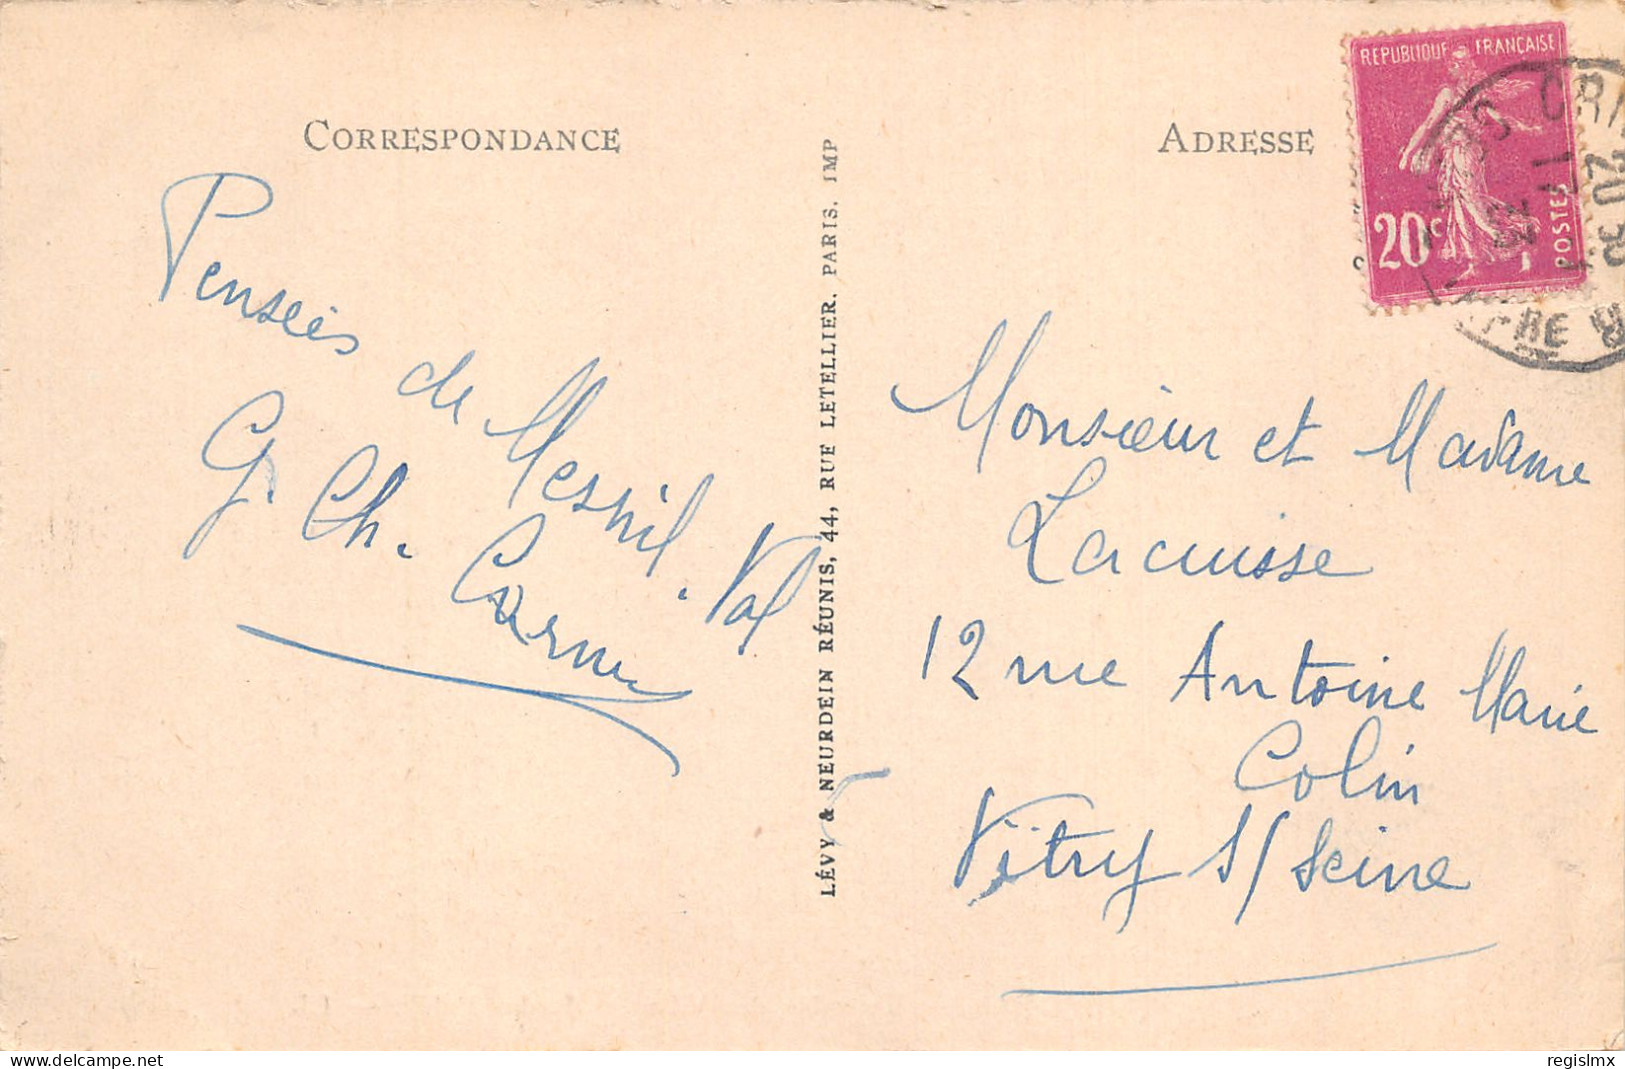 CORRESPONDANCE
Pensées
de Mesnil-Val
G. Ch. Carnu
LÉVY & NEURDEIN RÉUNIS, 44, RUE LETELLIER, PARIS. IMP
ADRESSE
REPUBLIQUE FRANÇAISE
20c
POSTES
CRI
17
20 30
Monsieur et Madame
Lacuisse
12 rue Antoine Marie
Colin
Vitry s/ Seine
www.delcampe.net
regislmx